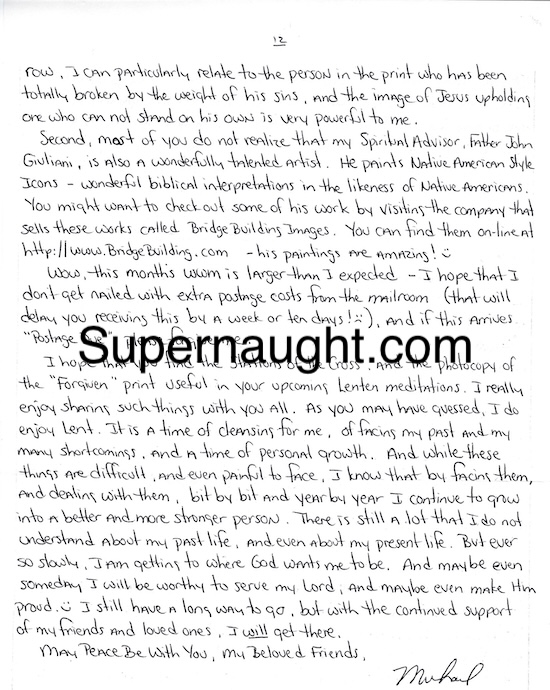 12
row, I can particularly relate to the person in the print who has been
totally broken by the weight of his sins, and the image of Jesus upholding
one who can not stand on his own is very powerful to me.
Second, most of you do not realize that my Spiritual Advisor, Father John
Giuliani, is also a wonderfully talented artist. He paints Native American Style
Icons – wonderful biblical interpretations in the likeness of Native Americans.
You might want to check out some of his work by visiting the company that
sells these works called Bridge Building Images. You can find them on-line at
http://www.BridgeBuilding.com – his paintings are amazing! :)
Wow, this months WWOM is larger than I expected – I hope that I
don't get nailed with extra postage costs from the mailroom (that will
delay you receiving this by a week or ten days! :), and if this arrives
"Postage
Supernaught.com
I hope that you find the Stations of the Cross, and the photocopy of
the "Forgiven" print useful in your upcoming Lenten meditations. I really
enjoy sharing such things with you all. As you may have guessed, I do
enjoy Lent. It is a time of cleansing for me, of facing my past and my
many shortcomings, and a time of personal growth. And while these
things are difficult, and even painful to face, I know that by facing them,
and dealing with them, bit by bit and year by year I continue to grow
into a better and more stronger person. There is still a lot that I do not
understand about my past life, and even about my present life. But ever
so slowly, I am getting to where God wants me to be. And maybe even
someday I will be worthy to serve my Lord, and maybe even make Him
proud. :) I still have a long way to go, but with the continued support
of my friends and loved ones, I will get there.
May Peace Be With You, My Beloved Friends,
Michael